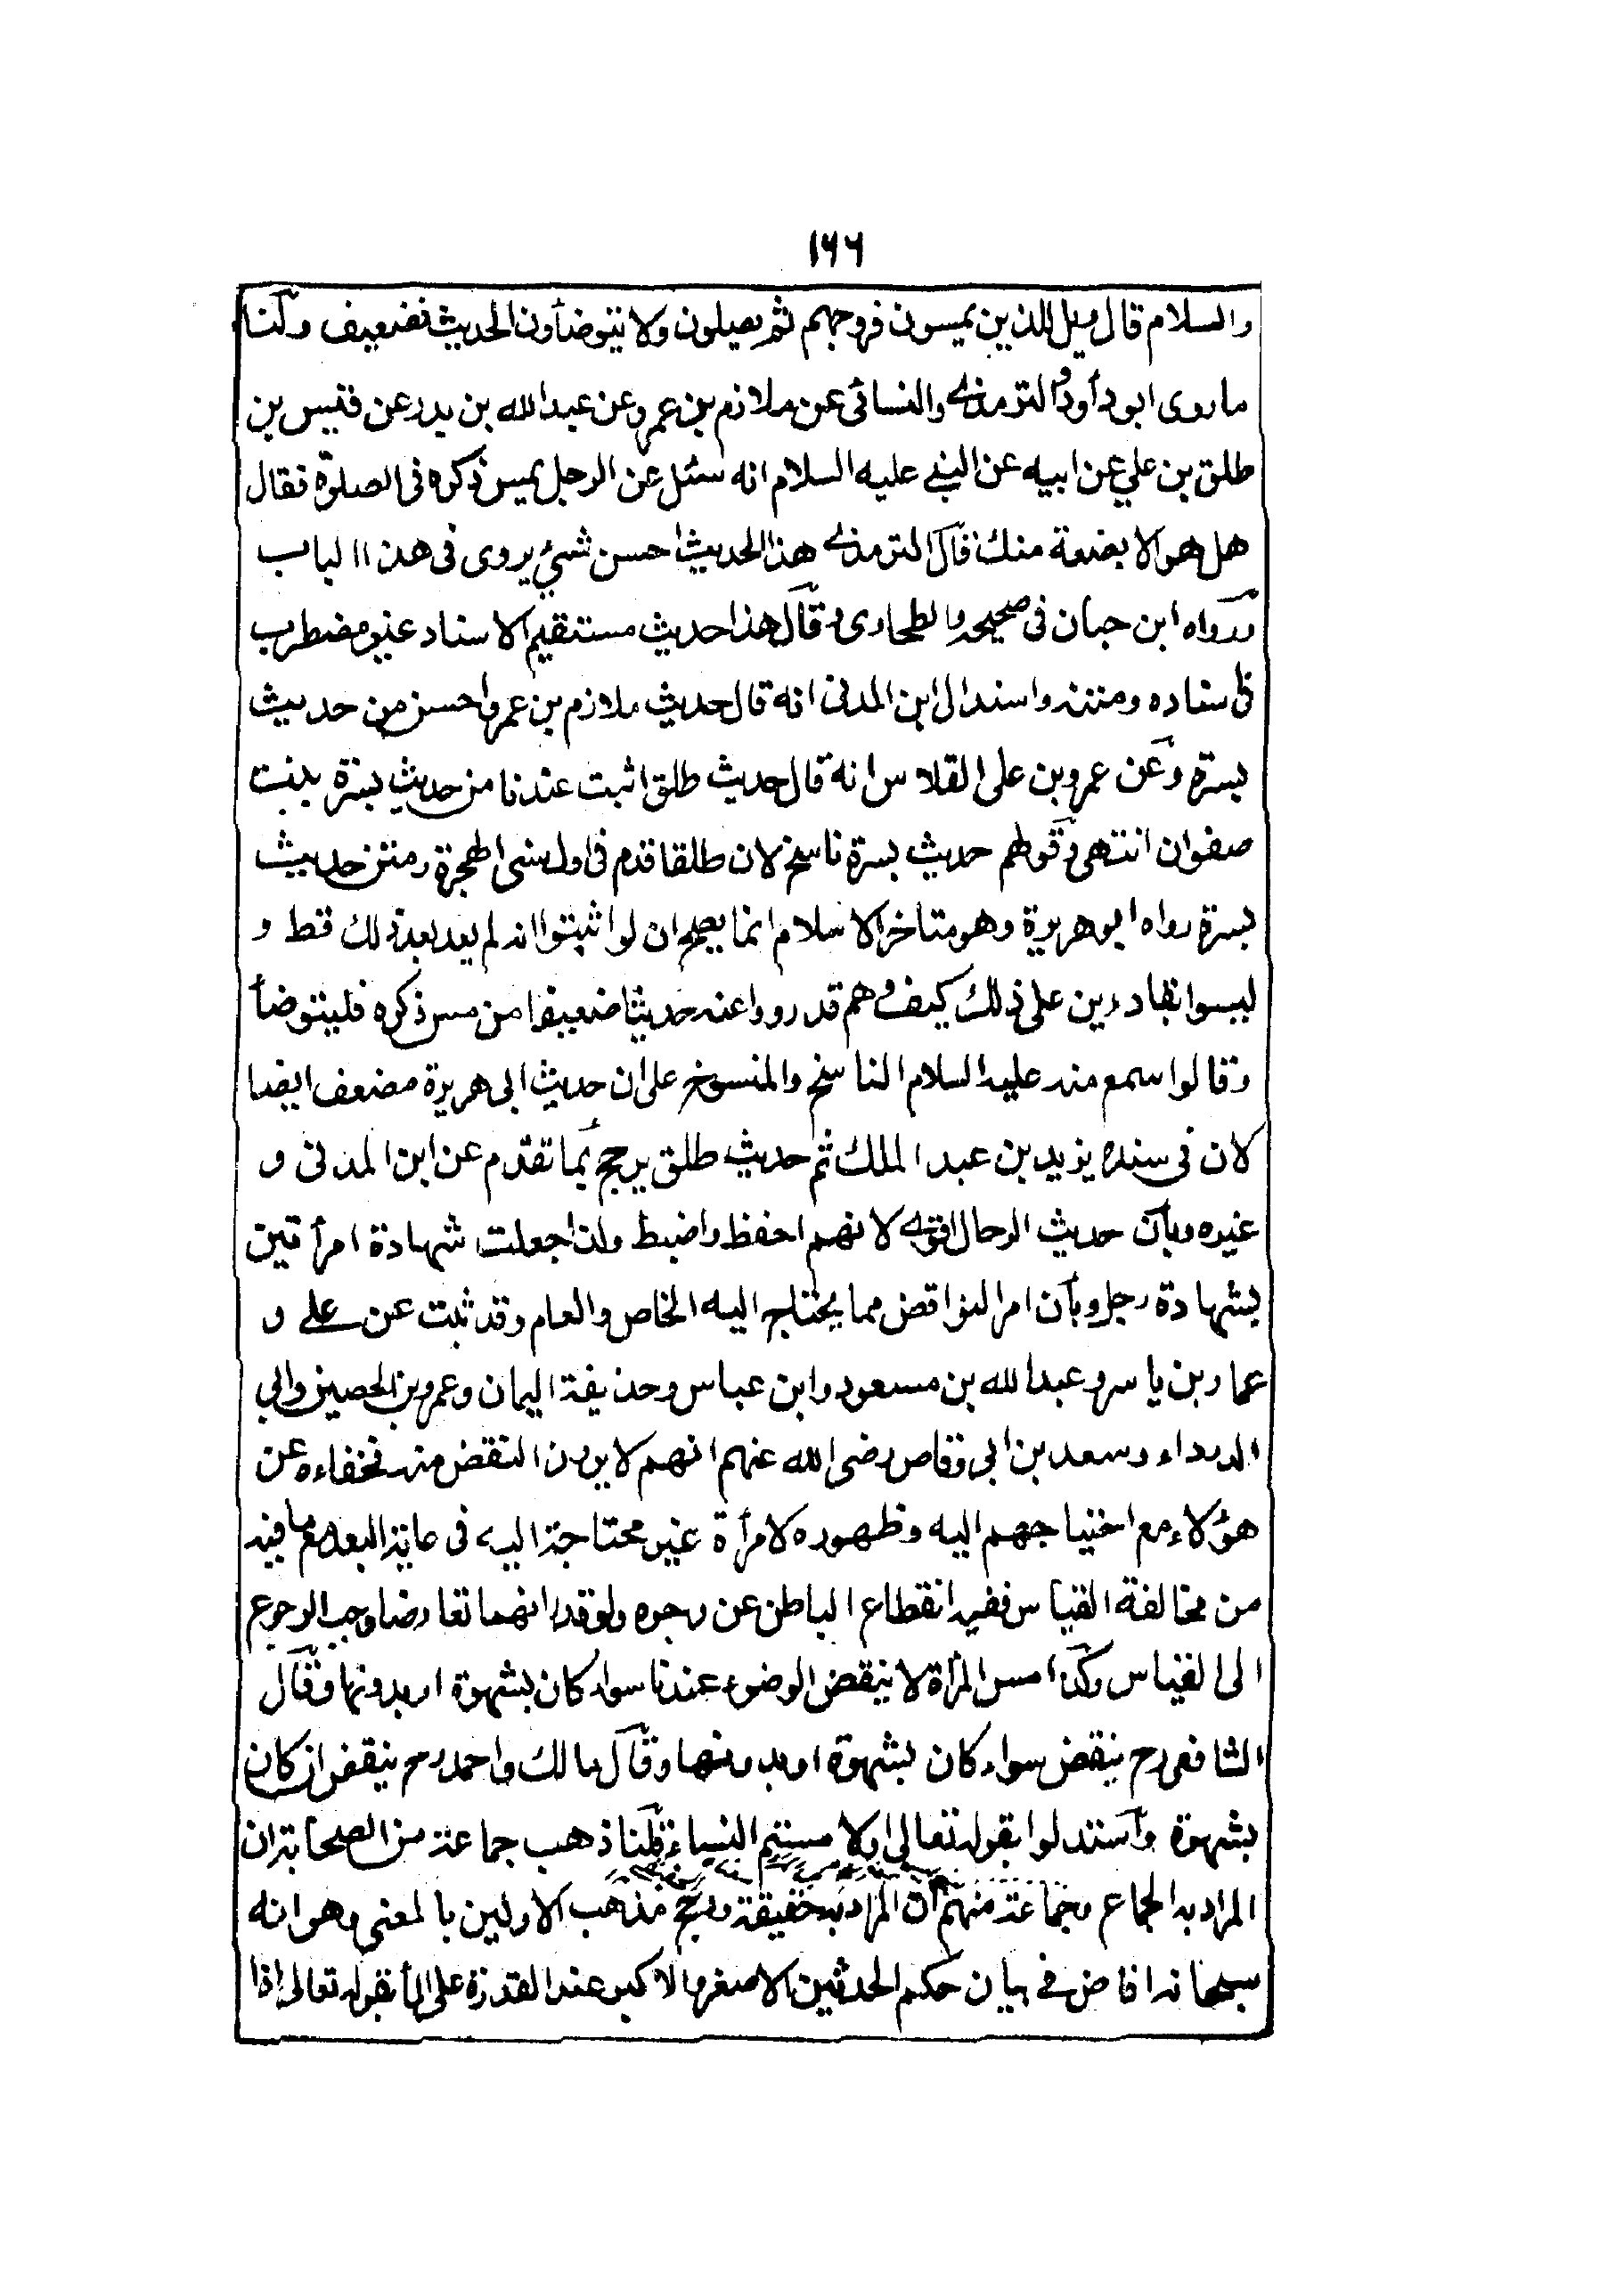 ١٦٦
والسلام قال ويل للذين يمسون فروجهم ثم يصلون ولا يتوضأون الحديث فضعيف ولنا
ما روى ابو دأود والترمذى والنسائى عن ملازم بن عمرو عن عبد الله بن بدر عن قيس بن
طلق بن علي عن ابيه عن النبى عليه السلام انه سئل عن الرجل يمس ذكره فى الصلوة فقال
هل هو الا بضعة منك قال الترمذى هذا الحديث احسن شيئ يروى فى هذا الباب
ورواه ابن حبان فى صحيحه والطحاوى وقال هذا حديث مستقيم الاسناد غير مضطرب
فى سناده ومتنه واسند الى ابن المدنى انه قال حديث ملازم بن عمرو احسن من حديث
بسرة وعن عمرو بن على القلاس انه قال حديث طلق اثبت عندنا من حديث بسرة بنت
صفوان انتهى وقولهم حديث بسرة ناسخ لان طلقا قدم فى اول سنى الهجرة ومتن حديث
بسرة رواه ابو هريرة وهو متاخر الاسلام انما يصح ان لو اثبتوا انه لم يعد بعد ذلك قط و
ليسوا بقادرين على ذلك كيف وهم قد رووا عنه حديثا ضعيفا من مس ذكره فليتوضأ
وقالوا سمع منه عليه السلام الناسخ والمنسوخ على ان حديث ابى هريرة مضعف ايضا
لان فى سنده يزيد بن عبد الملك ثم حديث طلق يرجح بما تقدم عن ابن المدنى و
غيره وبأن حديث الرجال اقوى لانهم احفظ واضبط ولذا جعلت شهادة امرأتين
بشهادة رجل وبأن امر النواقض مما يحتاج اليه الخاص والعام وقد ثبت عن على و
عمار بن ياسر وعبد الله بن مسعود وابن عباس وحذيفة اليمان وعمرو بن الحصين وابي
الدرداء وسعد بن ابى وقاص رضى الله عنهم انهم لا يرون النقض منه فخفاءه عن
هؤلاء مع احتياجهم اليه وظهوره لامرأة غير محتاجة اليه فى غاية البعد مع ما فيه
من مخالفة القياس ففيه انقطاع الباطن عن وجوه ولو قدر انهما تعارضا وجب الرجوع
الى القياس وكذا مس المرأة لا ينقض الوضوء عندنا سواء كان بشهوة او بدونها وقال
الشافعى رح ينقض سواء كان بشهوة او بدونها وقال مالك واحمد رح ينقض ان كان
بشهوة وأستدلوا بقوله تعالى اولامستم النساء قلنا ذهب جماعة من الصحابة ان
المراد به الجماع وجماعة منهم ان المراد به حقيقة ورجح مذهب الاولين بالمعنى وهو انه
سبحانه افاض في بيان حكم الحدثين الاصغر والاكبر عند القدرة على المأ بقوله تعالى اذا